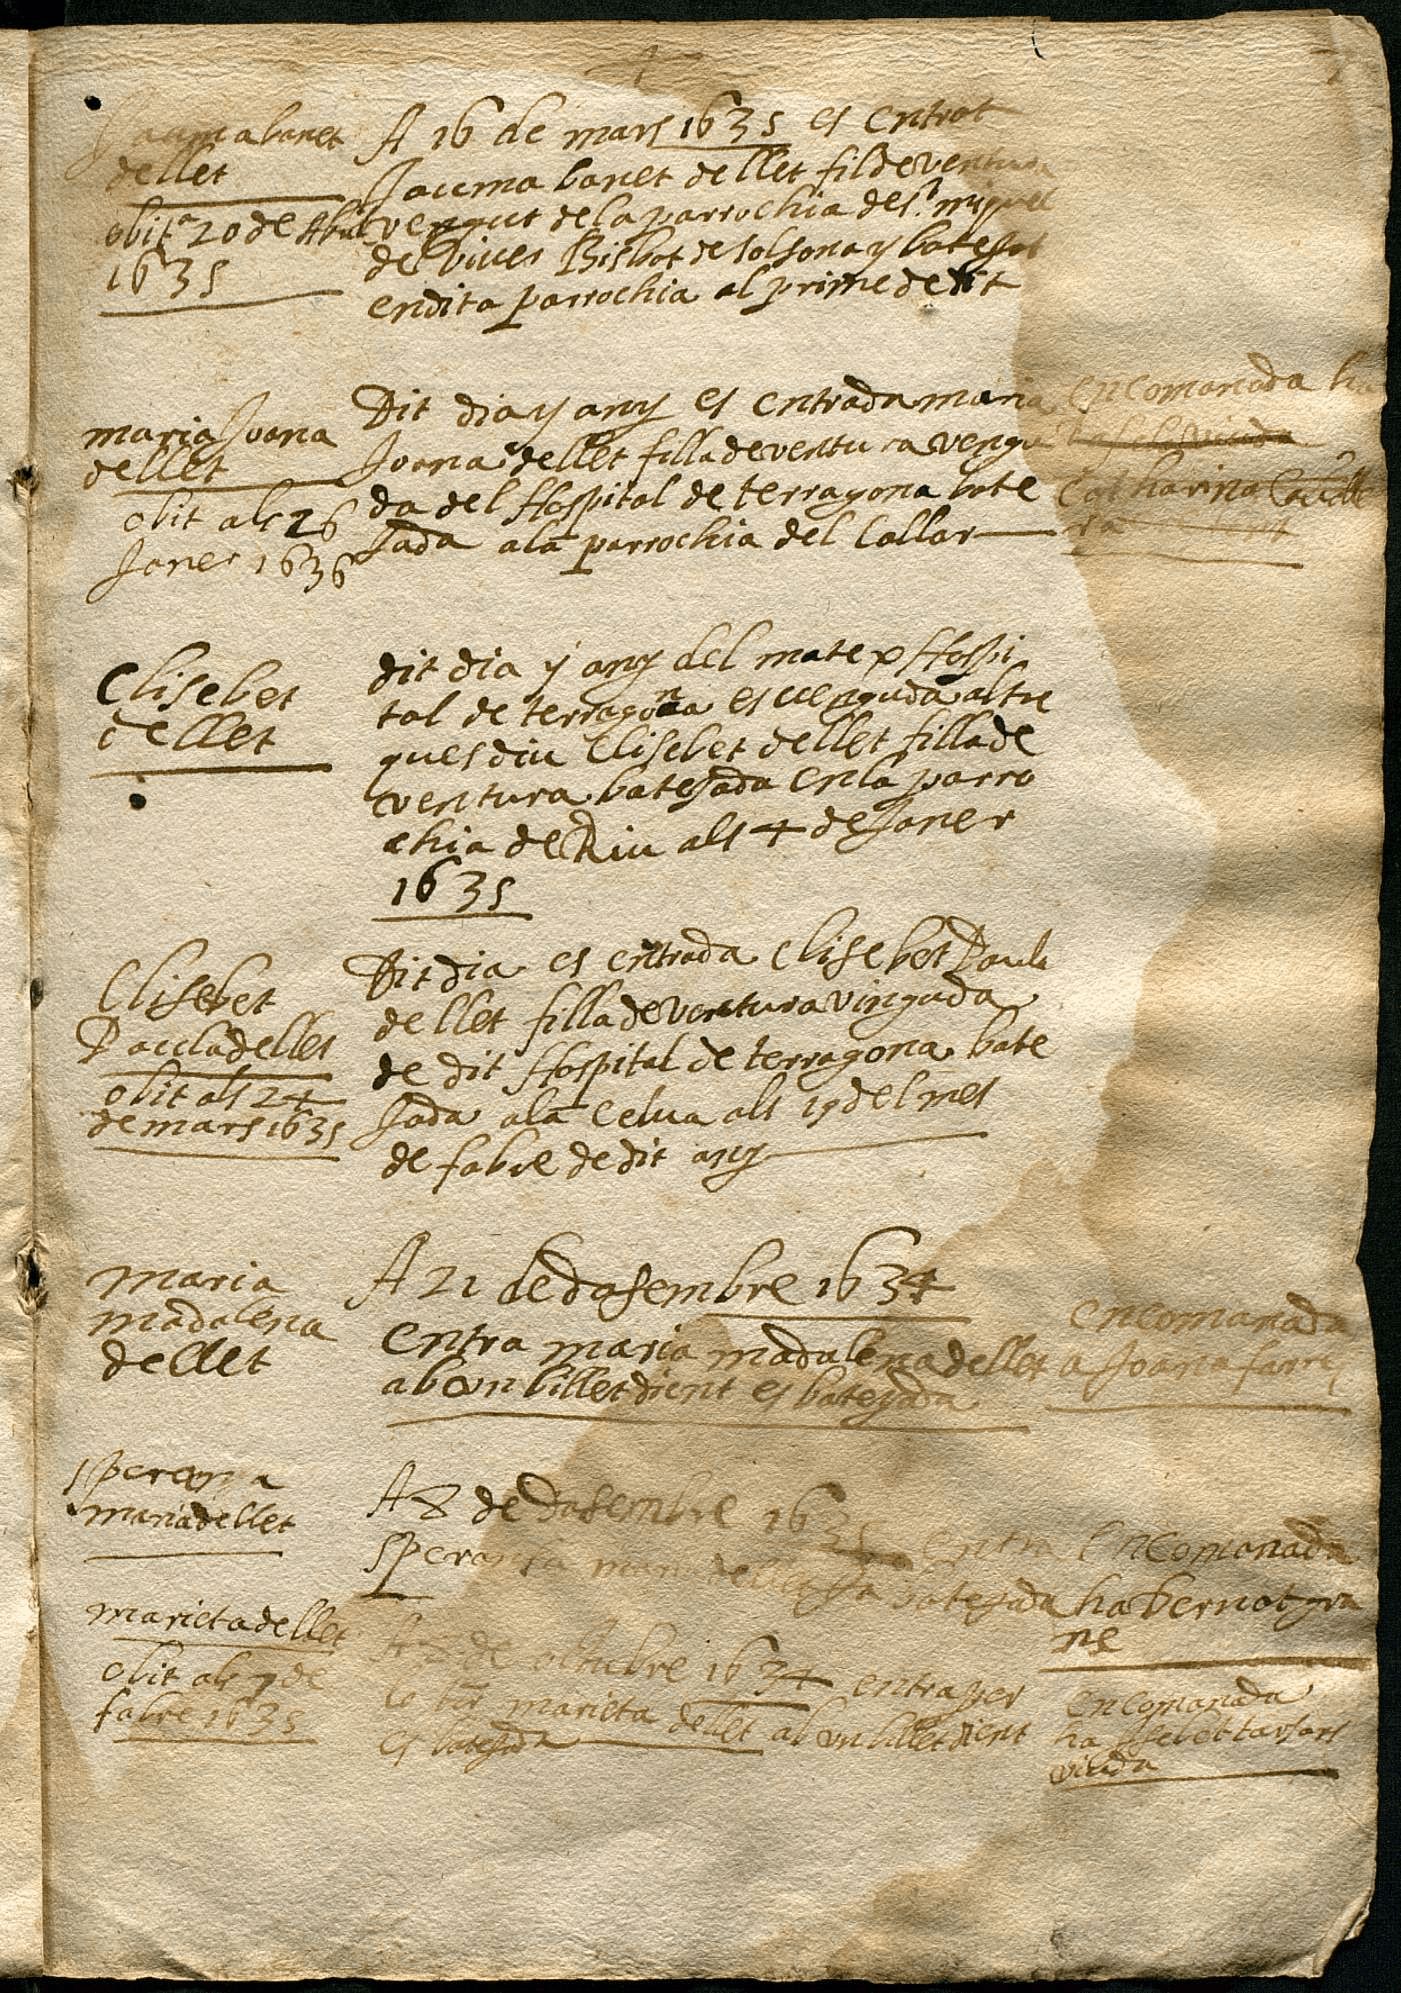 Jauma banet
dellet
obit a 20 de Abril
1635
A 16 de mars 1635 es entrat
Jauma banet dellet fil de ventura
vengut de la parrochia de St. miquel
de viver Bisbat de solsona y batejat
en dita parrochia al prime de dit
maria Joana
dellet
obit als 26
Janer 1636
Dit dia y any es entrada maria
Joana dellet filla de ventura vengu
da del Hospital de terragona bate
Jada a la parrochia del Collar
encomanada ha
viuda
Catharina
ra
Elisebet
dellet
dit dia y any del matex Hospi
tal de terragona es uenguda altre
ques diu Elisebet dellet filla de
ventura batejada en la parro
chia de Riu als 4 de Janer
1635
Elisebet
Paula dellet
obit als 24
de mars 1635
Dit dia es entrada Elisebet Paula
dellet filla de ventura vinguda
de dit Hospital de terragona bate
Jada a la Celua als 19 del mes
de fabre de dit any
maria
madalena
dellet
A 21 de dasembre 1634
entra maria madalena dellet
ab un billet dient es batejada
encomanada
a Joana farre
speransa
maria dellet
A 8 de dasembre 1635
speransa maria dellet entra
Ja batejada
encomanada
ha bernat gra
ne
marieta dellet
obit als 7 de
fabre 1635
de octubre 1634 entra per
lo torn marieta dellet ab un billet dient
es batejada
encomanada
ha Jsebet tarsars
viuda